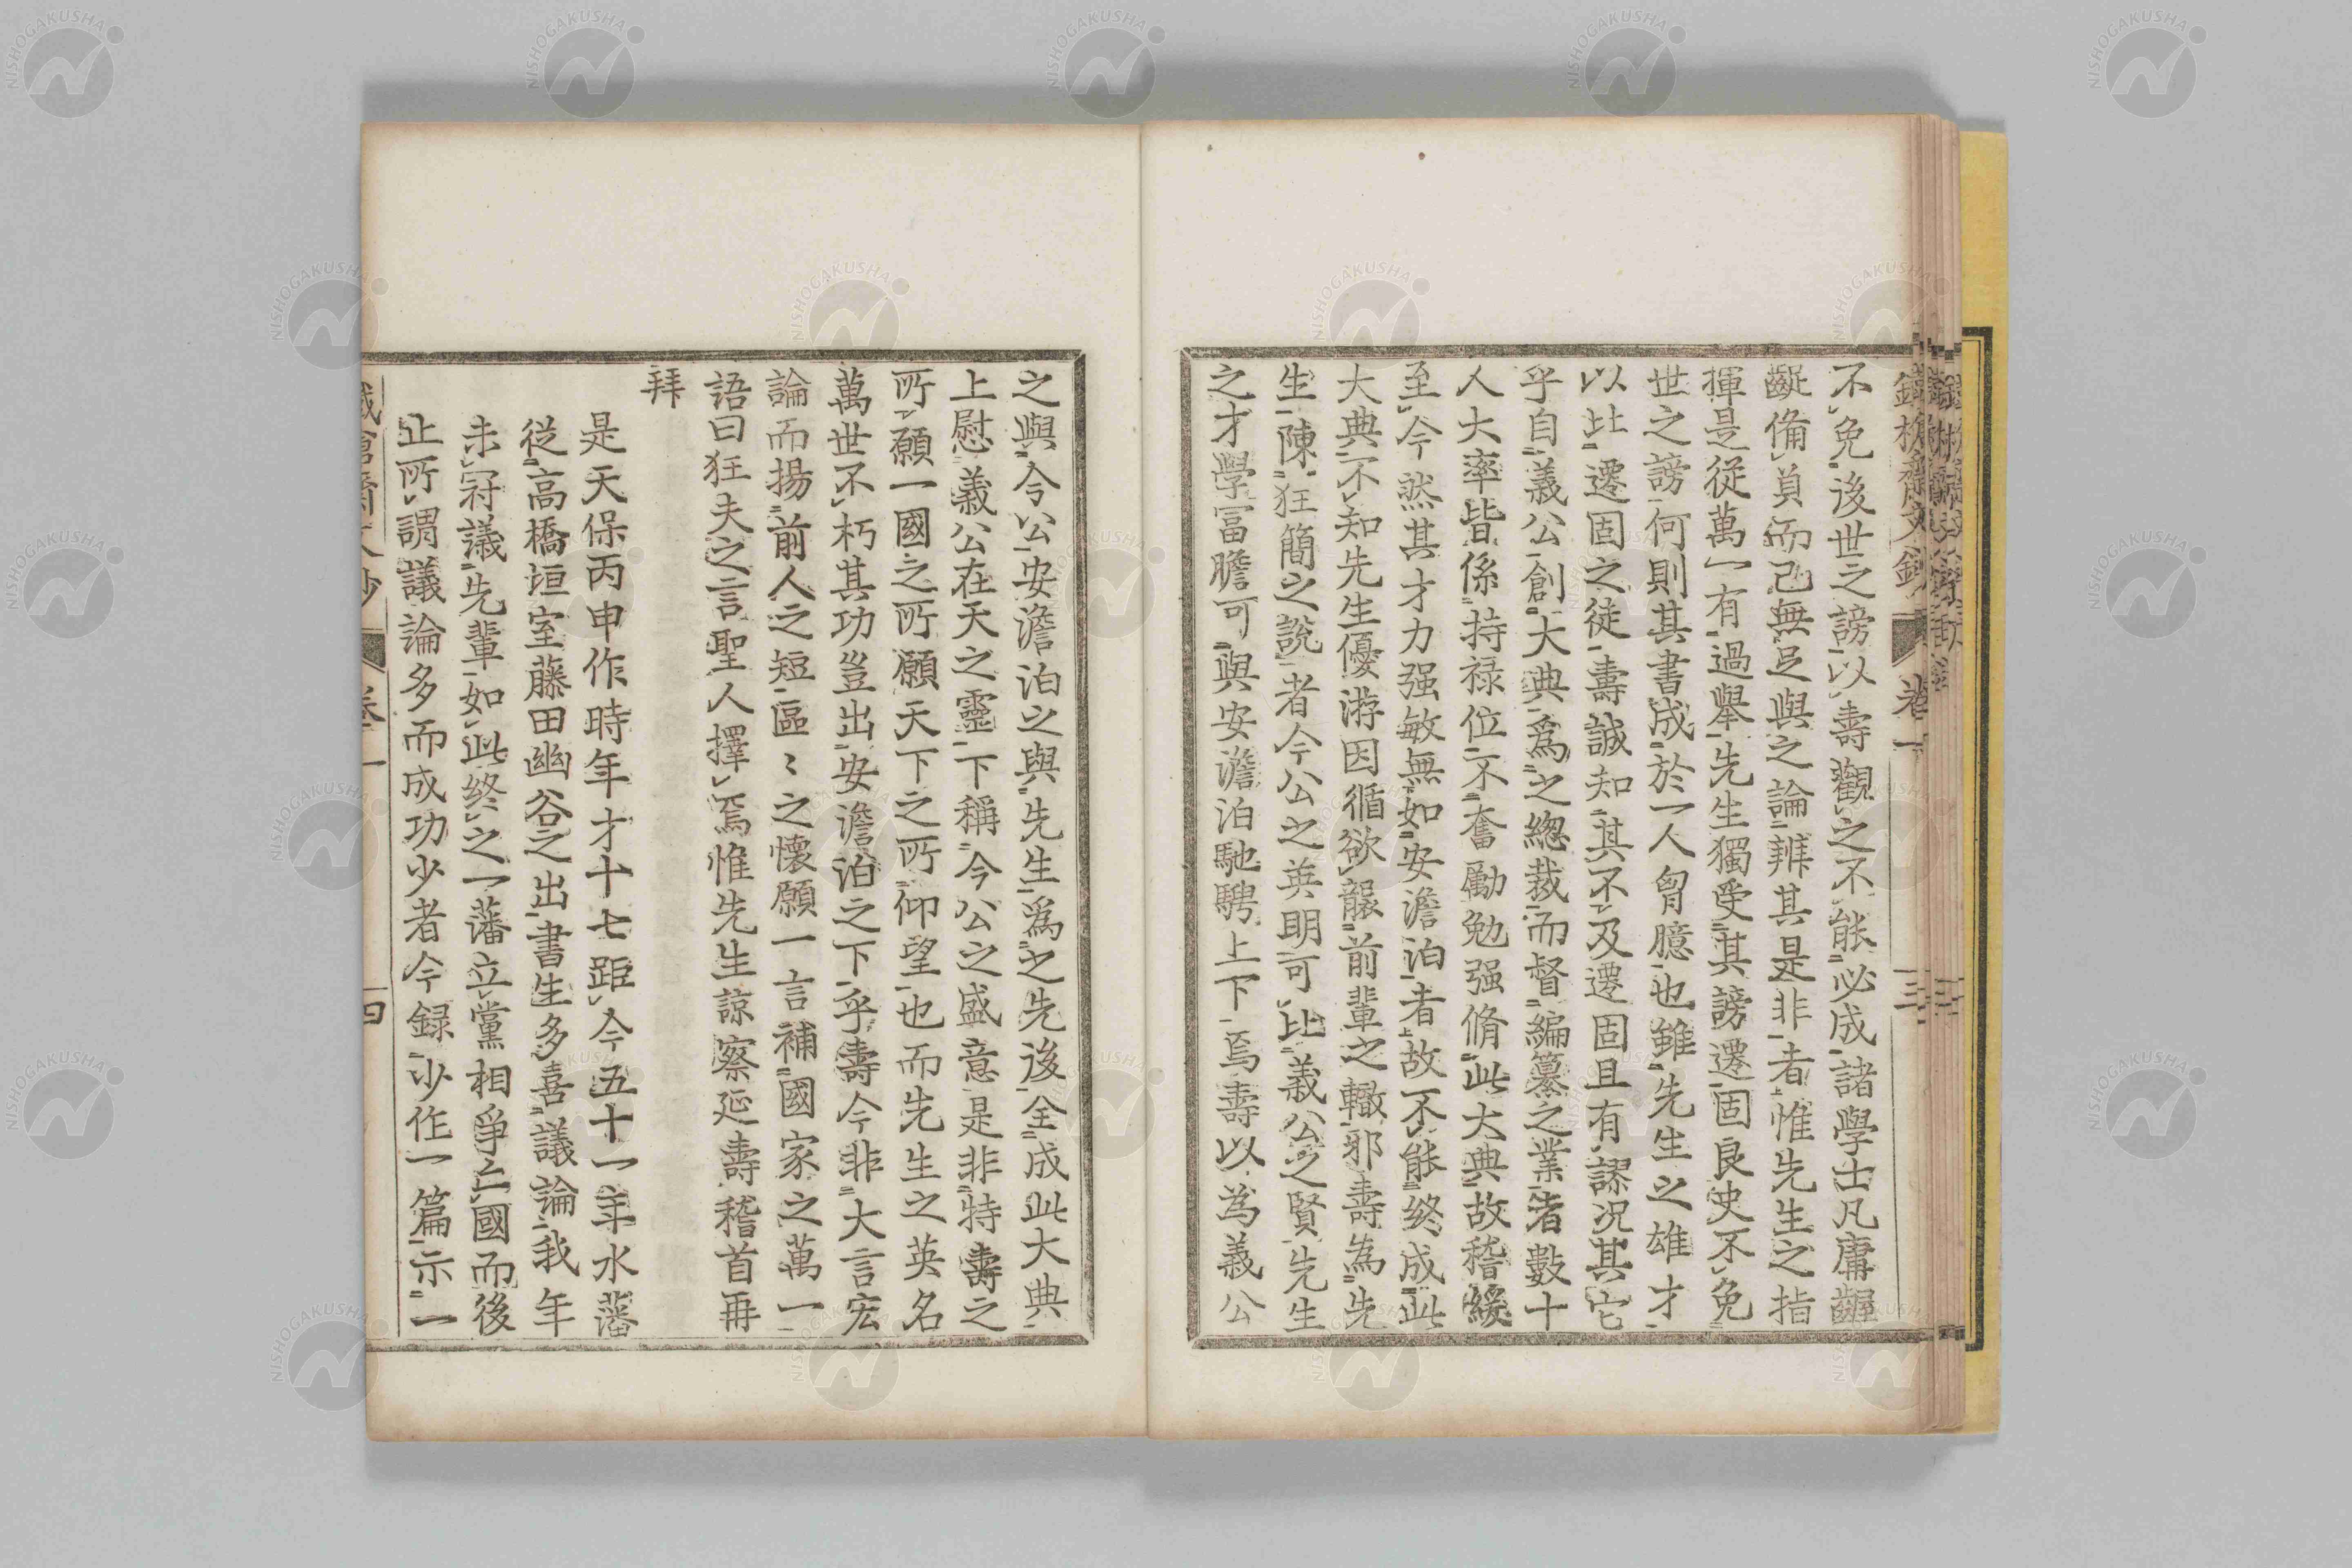 不免後世之謗以壽觀之不能必成諸學士凡庸齷
齪備員而已無足與之論辨其是非者惟先生之指
揮是從萬一有過擧先生獨受其謗遷固良史不免
世之謗何則其書成於一人胷臆也雖先生之雄才
以比遷固之徒壽誠知其不及遷固且有謬况其它
乎自義公創大典爲之總裁而督編纂之業者數十
人大率皆係持禄位不奮勵勉强脩此大典故稽緩
至今然其才力强敏無如安澹泊者故不能終成此
大典不知先生優游因循欲襲前輩之轍邪壽為先
生陳狂簡之說者今公之英明可比義公之賢先生
之才學冨贍可與安澹泊馳騁上下焉壽以為義公
之與今公安澹泊之與先生爲之先後全成此大典
上慰義公在天之靈下稱今公之盛意是非特壽之
所願一國之所願天下之所仰望也而先生之英名
萬世不朽其功豈出安澹泊之下乎壽今非大言宏
論而揚前人之短區〻之懷願一言補國家之萬一
語曰狂夫之言聖人擇焉惟先生諒察延壽稽首再
拜
是天保丙申作時年才十七距今五十一年水藩
從高橋垣室藤田幽谷之出書生多喜議論我年
未冠議先輩如此終之一藩立黨相爭亡國而後
止所謂議論多而成功少者今録少作一篇示一
卷一
三
四